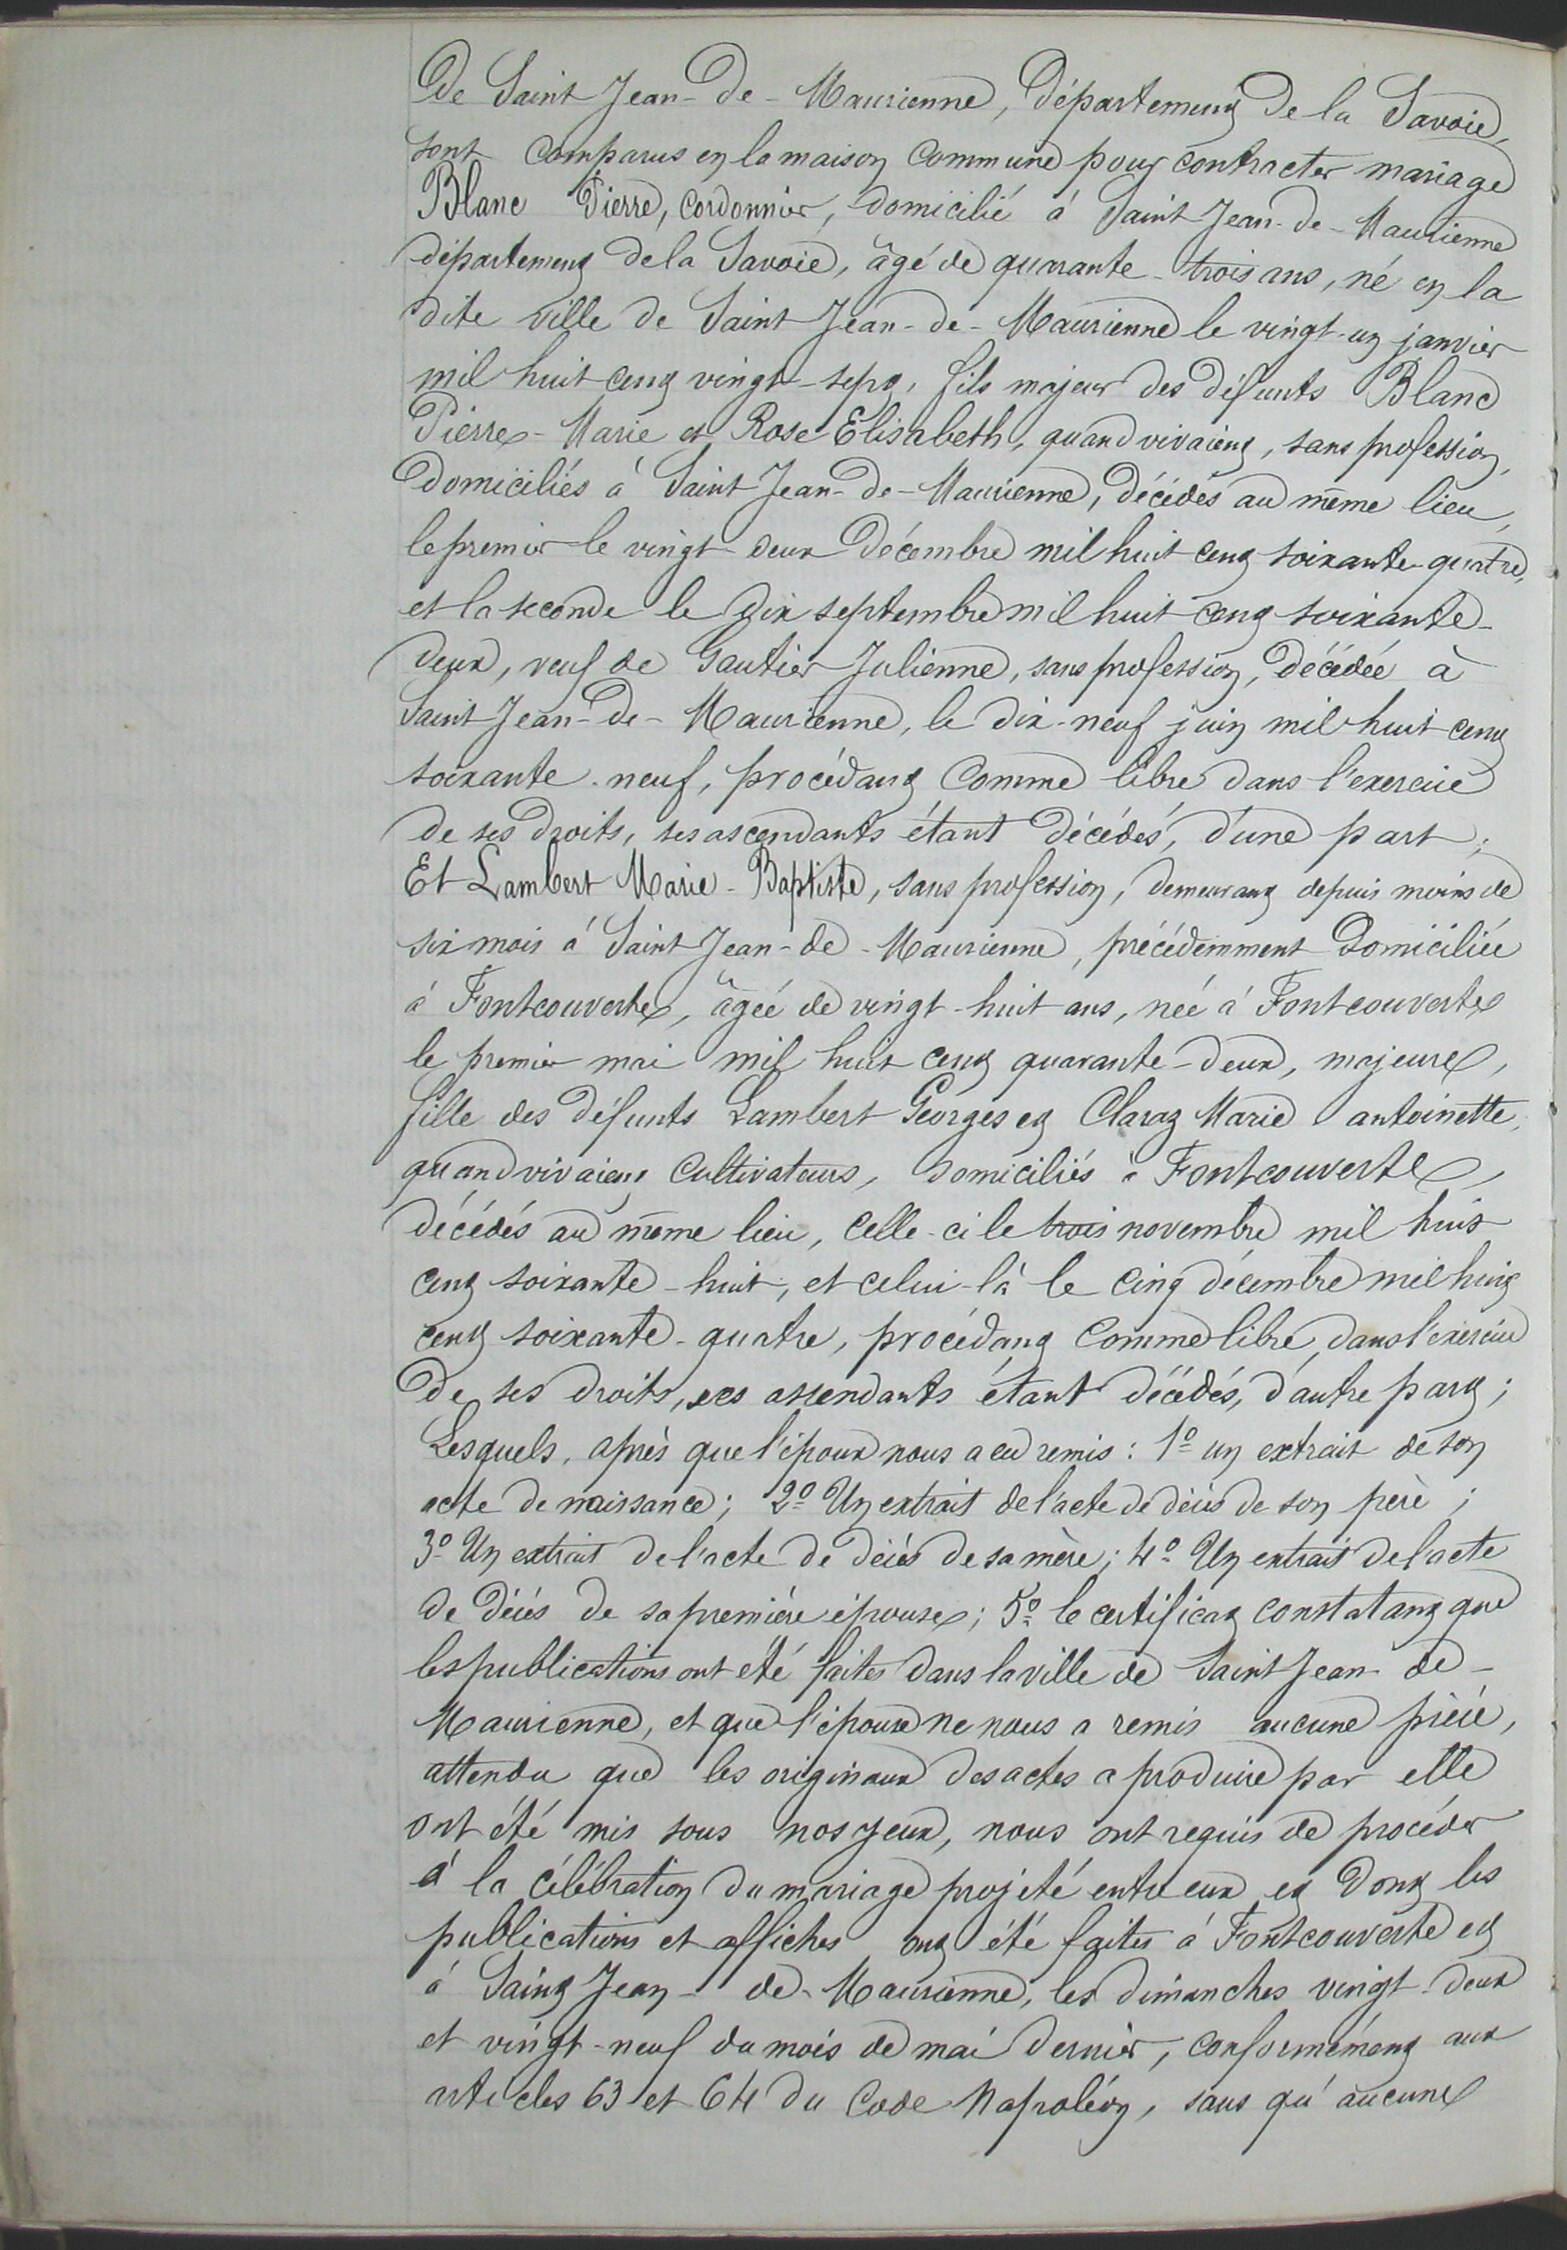 de Saint Jean-de-Maurienne, département de la Savoie,
sont comparus en la maison commune pour contracter mariage
Blanc Pierre, cordonnier, domicilié à Saint Jean-de-Maurienne
département de la Savoie, âgé de quarante-trois ans, né en la
dite ville de Saint Jean-de-Maurienne le vingt-un janvier
mil huit cent vingt-sept, fils majeur des défunts Blanc
Pierre-Marie et Rose Elisabeth, quand vivaient, sans profession,
domiciliés à Saint Jean-de-Maurienne, décédés au même lieu,
le premier le vingt-deux décembre mil huit cent soixante-quatre,
et la seconde le dix septembre mil huit cent soixante-
deux, veuf de Gautier Julienne, sans profession, décédée à
Saint Jean-de-Maurienne, le dix-neuf juin mil huit cent
soixante-neuf, procédant comme libre dans l'exercice
de ses droits, ses ascendants étant décédés, d'une part;
Et Lambert Marie-Baptiste, sans profession, demeurant depuis moins de
six mois à Saint Jean-de-Maurienne, précédemment domiciliée
à Fontcouverte, âgée de vingt-huit ans, née à Fontcouverte
le premier mai mil huit cent quarante-deux, majeure,
fille des défunts Lambert Georges et Claraz Marie antoinette,
quand vivaient cultivateurs, domiciliés à Fontcouverte,
décédés au même lieu, celle-ci le trois novembre mil huit
cent soixante-huit, et celui-là le cinq décembre mil huit
cent soixante-quatre, procédant comme libre, dans l'exercice
de ses droits, ses ascendants étant décédés, d'autre part;
Lesquels, après que l'époux nous a eu remis: 1º un extrait de son
acte de naissance; 2º Un extrait de l'acte de décès de son père;
3º Un extrait de l'acte de décès de sa mère; 4º Un extrait de l'acte
de décès de sa première épouse; 5º le certificat constatant que
les publications ont été faites dans la ville de Saint Jean-de-
Maurienne, et que l'épouse ne nous a remis aucune pièce,
attendu que les originaux des actes a produire par elle
ont été mis sous nos yeux, nous ont requis de procéder
à la célébration du mariage projeté entre eux et dont les
publications et affiches ont été faites à Fontcouverte et
à Saint Jean-de-Maurienne, les dimanches vingt-deux
et vingt-neuf du mois de mai dernier, conformément aux
articles 63 et 64 du Code Napoléon, sans qu'aucune